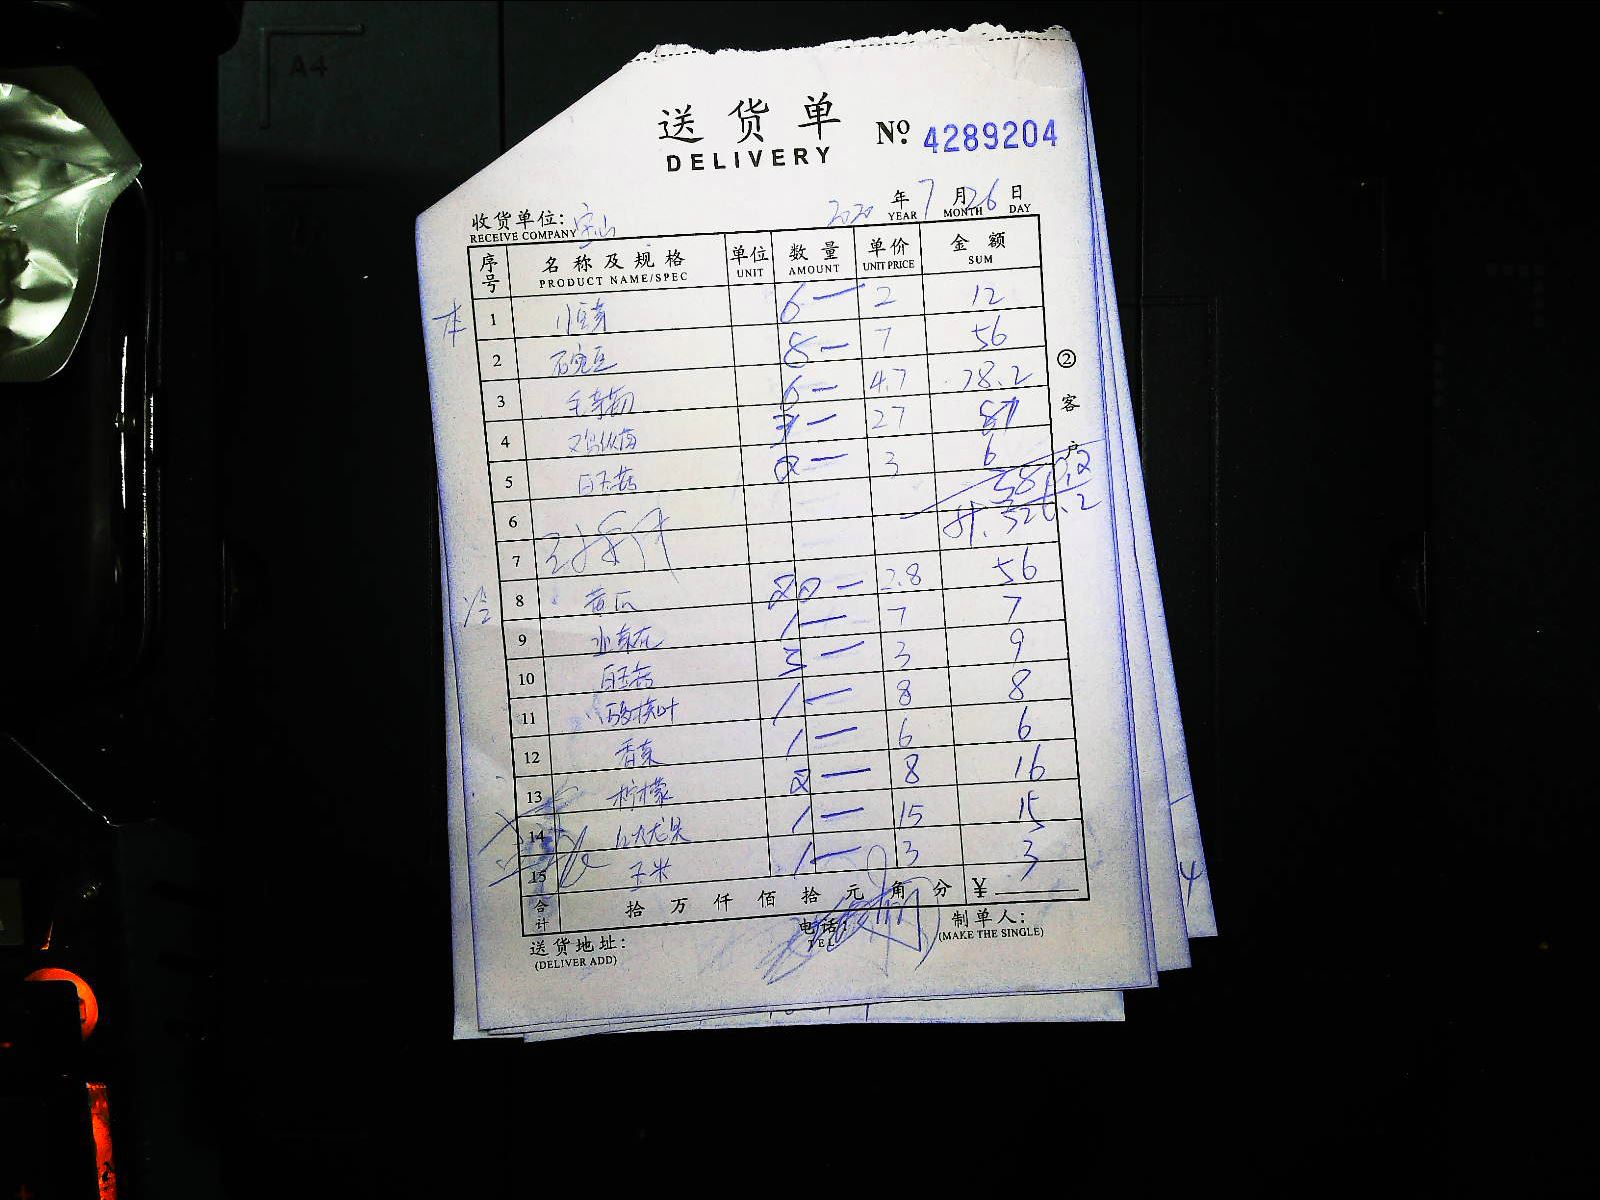 A4
送货单
DELIVERY
№ 4289204
收货单位: 宝山 2020 年 7 月 26 日
RECEIVE COMPANY YEAR MONTH DAY
序号 名称及规格 单位 数量 单价 金额
PRODUCT NAME/SPEC UNIT AMOUNT UNIT PRICE SUM
本 1 小豆芽 6一 2 12
2 8一 7 56
3 6一 4.7 28.2
4 27
5 白玉菇 2一 3 6
6
7
冷 8 黄瓜 20一 2.8 56
9 1一 7 7
10 白玉菇 3一 3 9
11 1一 8 8
12 香菜 1一 6 6
13 柠檬 2一 8 16
14 红火龙果 1一 15 15
15 玉米 1一 3 3
合计 拾万仟佰拾元角分 ¥
送货地址: 电话: 制单人:
(DELIVER ADD) TEL (MAKE THE SINGLE)
②客户